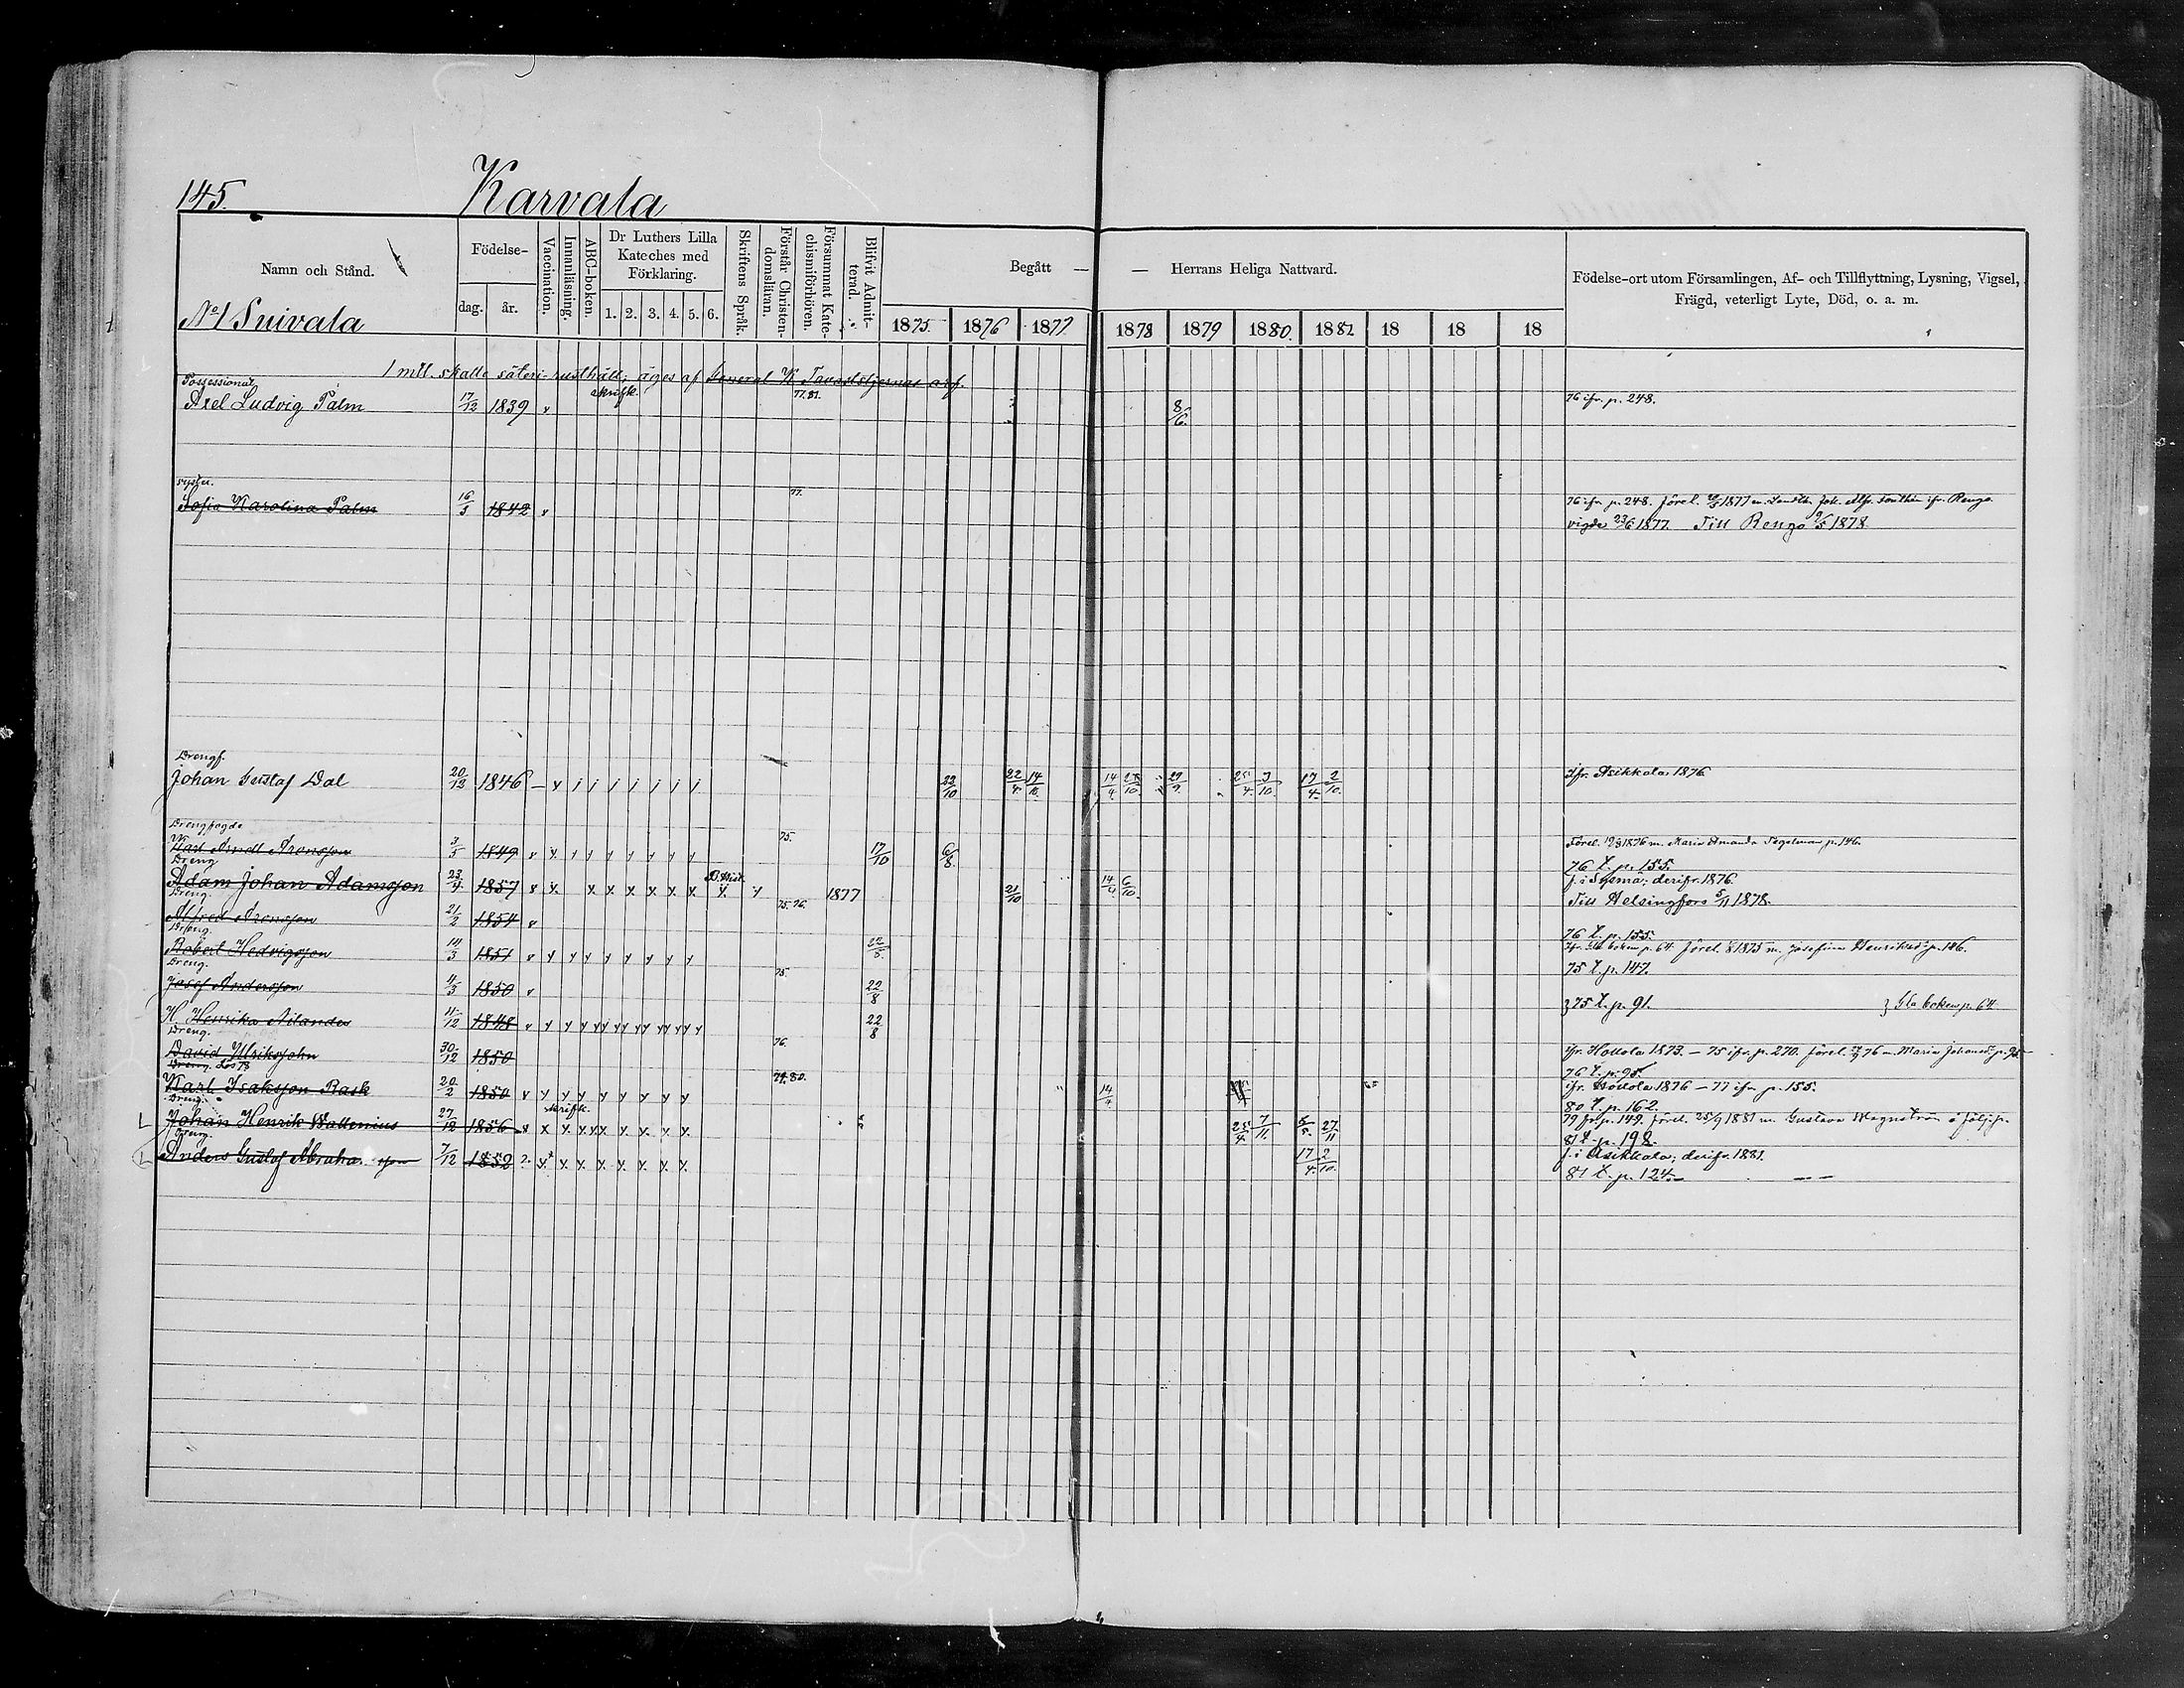 145.
Karvala
Namn och Stånd.
Födelse-
dag.
år.
Vaccination.
Innanläsning.
ABC-boken.
Dr Luthers Lilla
Kateches med
Förklaring.
1. 2. 3. 4. 5. 6.
Skriftens Språk.
Förstår Christen-
domsläran.
Försummat Kate-
chismiförhören.
Blifvit Admit-
terad.
Begått — — Herrans Heliga Nattvard.
1875. 1876 1877 1878 1879 1880. 1882 18 18 18
Födelse-ort utom Församlingen, Af- och Tillflyttning, Lysning, Vigsel,
Frägd, veterligt Lyte, Död, o. a. m.
No 1 Suivala
1 mtl. skatte säteri-rusthåll; äges af General K Tavaststjernas arf.
Possessionat
Axel Ludvig Palm 17/12 1839 v skrifk. 77.81. 8/6. 76 ifr. p. 248.
syster.
Sofia Karolina Palm 16/5 1842 v 77. 76 ifr. p. 248. Förel. 1877 m. Joh. Alfr. ifr. Rengo
vigde 23/6 1877. Till Rengo 9/5 1878
Drengf.
Johan Gustaf Dal 20/12 1846 — 22/10 22/4 14/10 14/4 29/9. 17/4 2/10. Ifr. Asikkala 1876
Drengfogde
Karl Arndt Aronsson 3/5 1849 75. 17/10 6/8. Förel. 1876 m. Maria Amanda Tegelman p. 146.
76 t. p. 155.
Dreng
Adam Johan Adamsson 23/4. 1857 1877 21/10 14/4 6/10. f. i Sysmä; derifr. 1876.
Till Helsingfors 5/11 1878.
Dreng
Alfred Aronsson 21/2 1854 v 75.76.
76 t. p. 155.
Dreng.
Robert Hedvigsson 14/3 1851 22/5. Ifr. Gla boken p. 64. Förel. 1875 m. Josefina Henriksd. p. 146.
75 t. p. 147.
Dreng.
Josef Andersson 4/3 1850 v 75. 22/8
75 t. p. 91. Gla boken p. 64
H. Henrika Ailandes 11/12 1848 22/8
Dreng.
David Ulriksjohn 30/12 1850 76. Ifr. Hollola 1873. — 75 ifr. p. 270. förel. 76 m. Maria Johansd. p. 95
76 t. p. 95.
Dreng. Los 78
Karl Isaksson Rask 20/2 1850 79.80. 14/4 ifr. Hollola 1876 — 77 ifr. p. 155.
80 t. p. 162.
Dreng.
L Johan Henrik Wallenius 27/12 1856 skrifk. 25/4. 7/11. 27/11 79 fr. p. 149. förel. 25/9 1881 m. Gustava Magnström å följ. p.
81 t. p. 198.
Dreng.
L Anders Gustaf Abrahamsson 7/12 1852 2. 17/4. 2/10. f. i Asikkala; derifr. 1881.
81 t. p. 124.